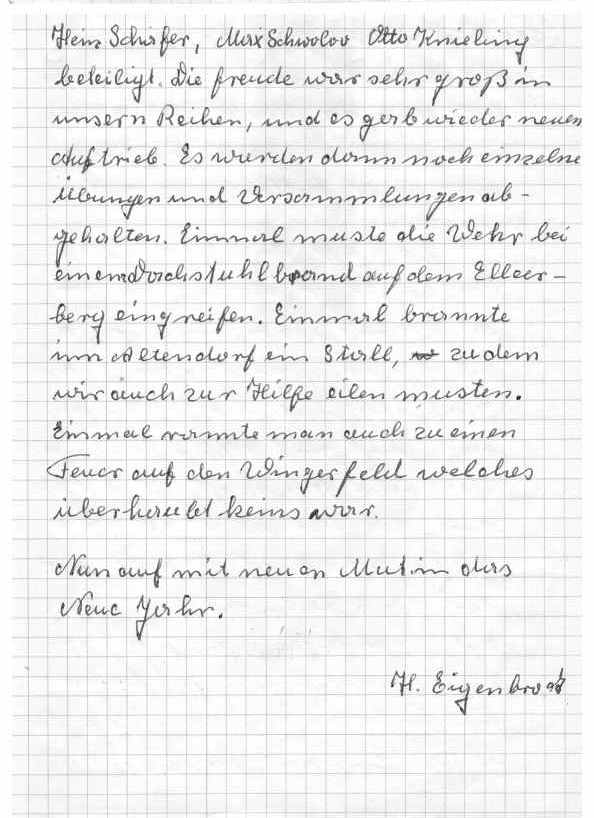 Heinz Schäfer, Max Schwolov Otto Knieling
beteiligt. Die freude war sehr groß in
unsern Reihen, und es gab wieder neuen
Auftrieb. Es wurden dann noch einzelne
Übungen und Versammlungen ab-
gehalten. Einmal muste die Wehr bei
einem Dachstuhlbrand auf dem Elleer-
berg eingreifen. Einmal brannte
inn Altendorf ein Stall, zu dem
wir auch zur Hilfe eilen musten.
Einmal rannte man auch zu einen
Feuer auf den Wingerfeld welches
überhaubt keins war.
Nun auf mit neuen Mut in das
Neue Jahr.
H. Eigenbrodt